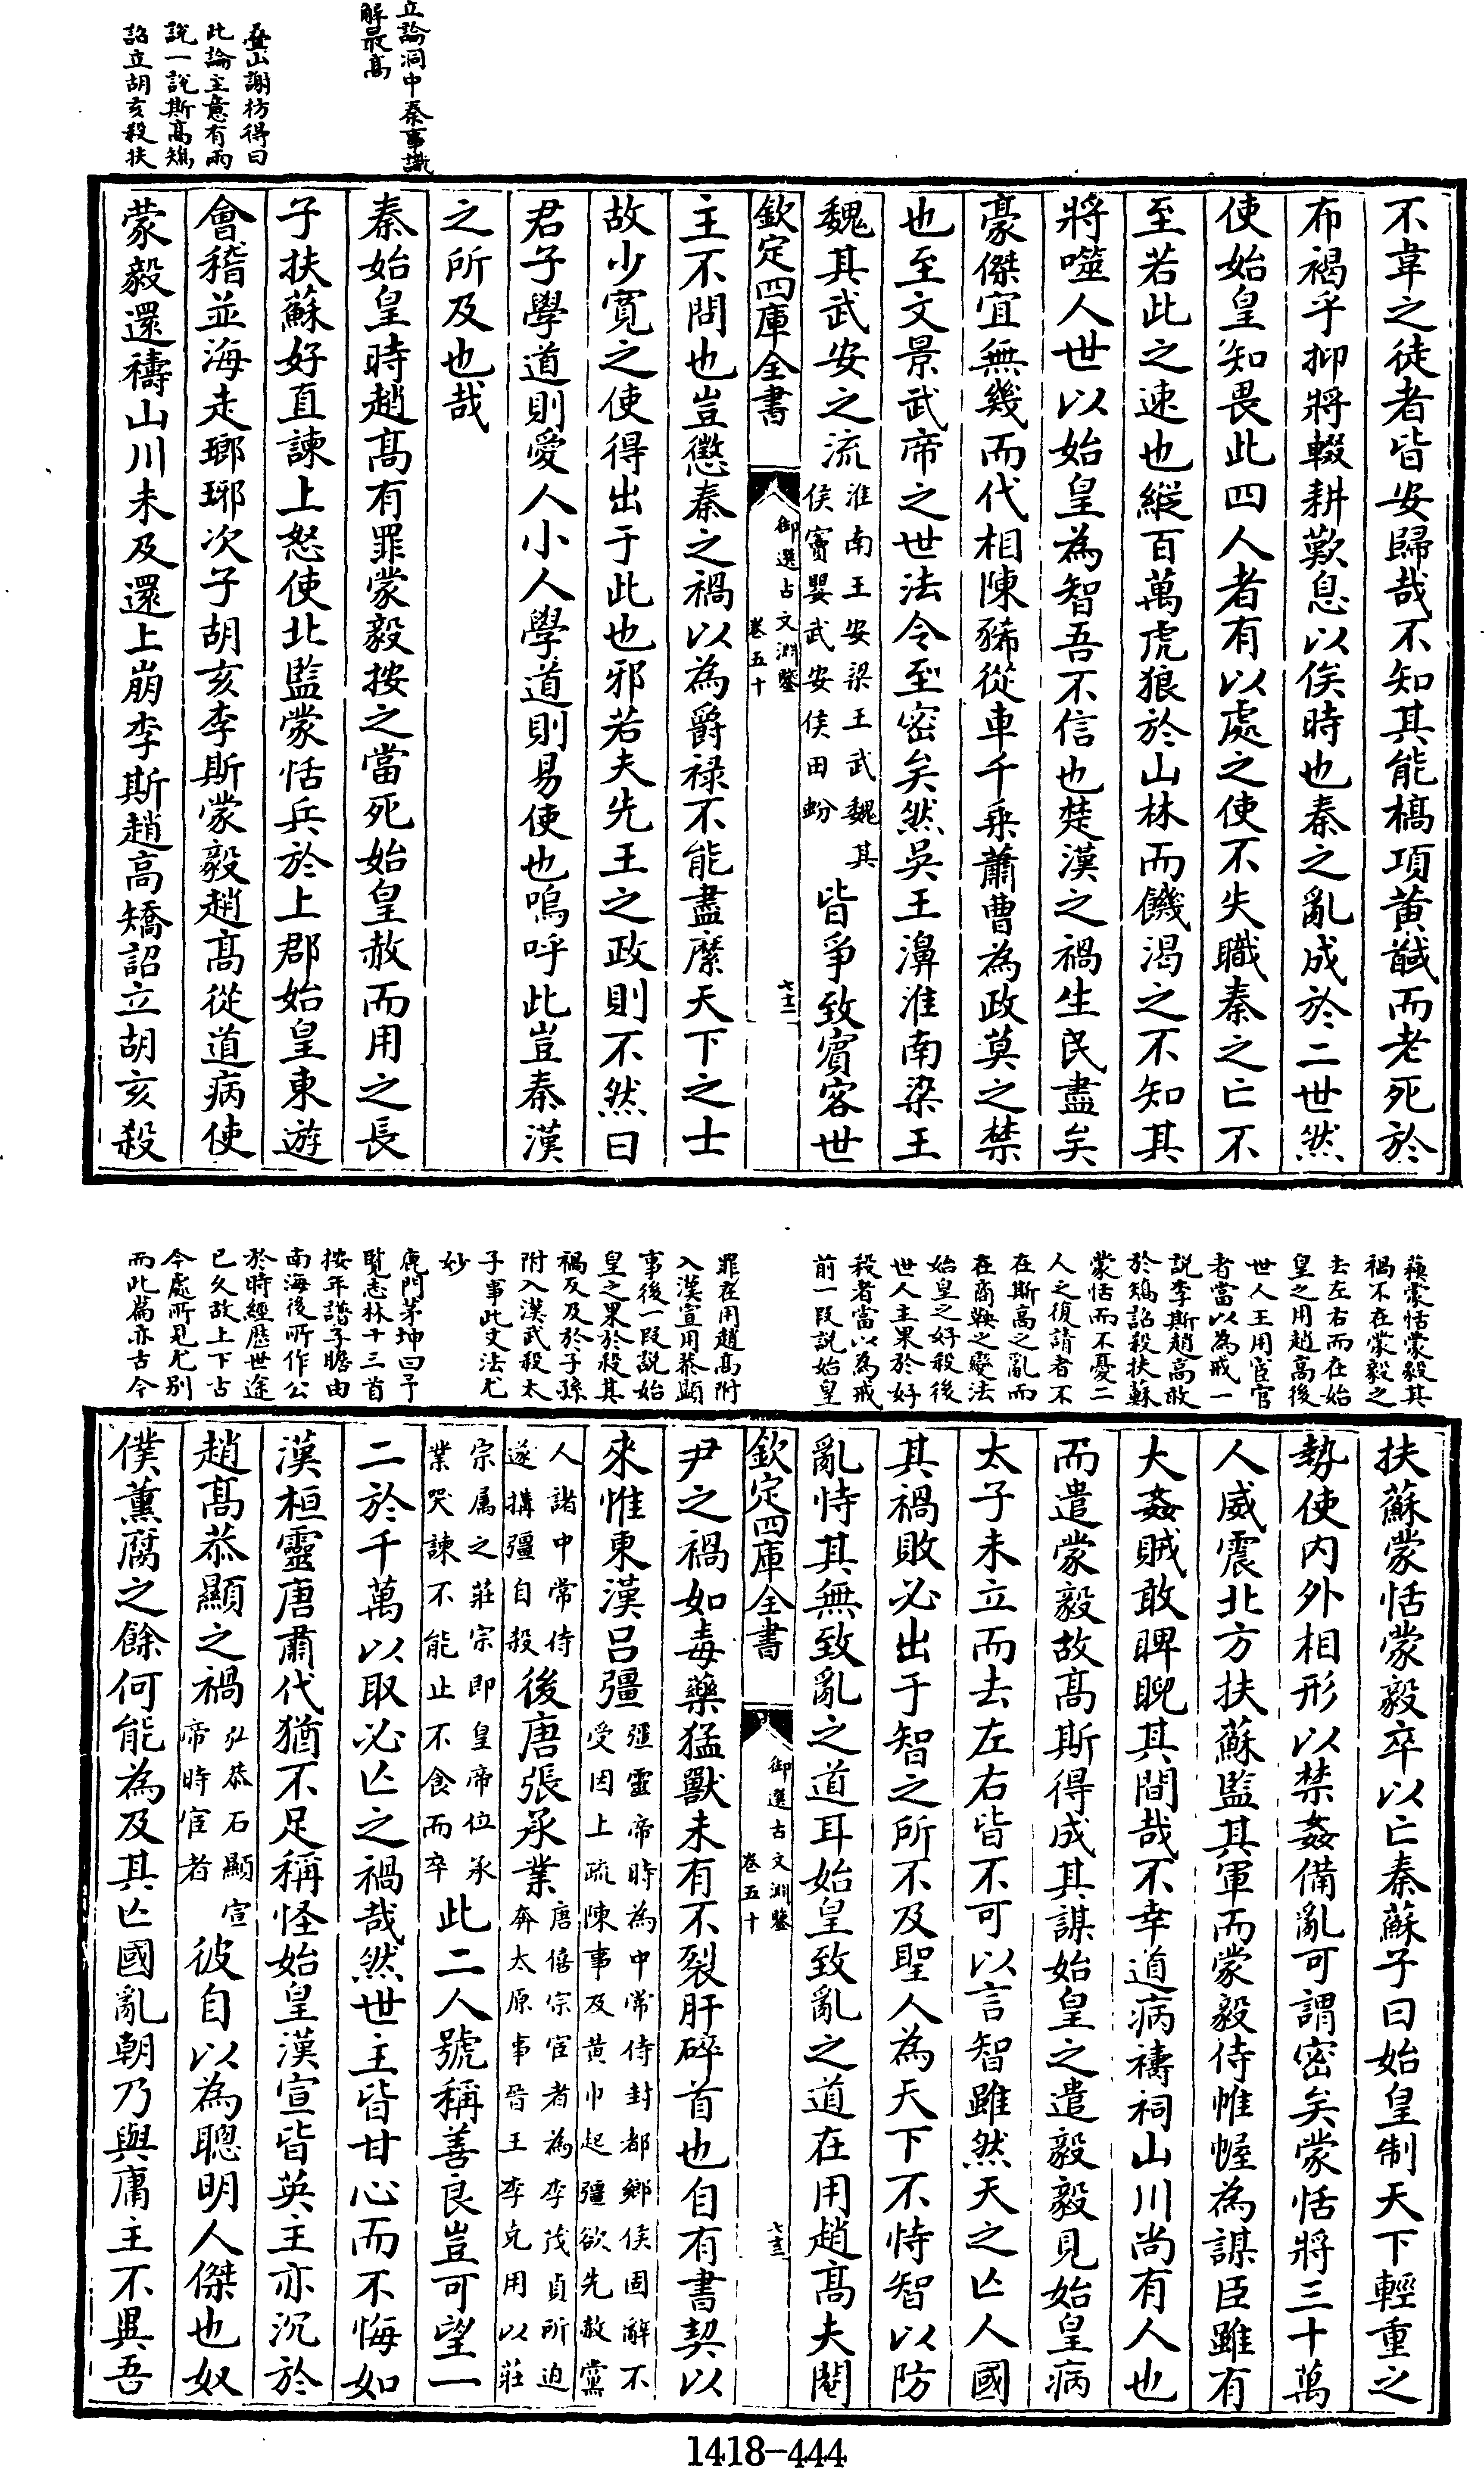 不韋之徒者皆安歸哉不知其能槁項黃馘而老死於
布褐乎抑將輟耕歎息以俟時也秦之亂成於二世然
使始皇知畏此四人者有以處之使不失職秦之亡不
至若此之速也縱百萬虎狼於山林而饑渴之不知其
將噬人世以始皇為智吾不信也楚漢之禍生民盡矣
豪傑宜無幾而代相陳豨從車千乘蕭曹為政莫之禁
也至文景武帝之世法令至密矣然吳王濞淮南梁王
魏其武安之流淮南王安梁王武魏其侯竇嬰武安侯田蚡皆爭致賓客世
欽定四庫全書
御選古文淵鑒
卷五十
七十二
主不問也豈懲秦之禍以為爵祿不能盡縻天下之士
故少寬之使得出于此也邪若夫先王之政則不然曰
君子學道則愛人小人學道則易使也嗚呼此豈秦漢
之所及也哉
立論洞中秦事識
解最高
秦始皇時趙高有罪蒙毅按之當死始皇赦而用之長
子扶蘇好直諫上怒使北監蒙恬兵於上郡始皇東遊
會稽並海走瑯琊次子胡亥李斯蒙毅趙高從道病使
蒙毅還禱山川未及還上崩李斯趙高矯詔立胡亥殺
疊山謝枋得曰
此論主意有兩
說一說斯高矯
詔立胡亥殺扶
蘇蒙恬蒙毅其
禍不在蒙毅之
去左右而在始
皇之用趙高後
世人主用宦官
者當以為戒一
說李斯趙高敢
於矯詔殺扶蘇
蒙恬而不憂二
人之復請者不
在斯高之亂而
在商鞅之變法
始皇之好殺後
世人主果於好
殺者當以為戒
前一段說始皇
罪在用趙高附
入漢宣用恭顯
事後一段說始
皇之果於殺其
禍反及於子孫
附入漢武殺太
子事此文法尤
妙
鹿門茅坤曰予
覽志林十三首
按年譜子瞻由
南海後所作公
於時經歷世途
已久故上下古
今處所見尤別
而此篇亦古今
扶蘇蒙恬蒙毅卒以亡秦蘇子曰始皇制天下輕重之
勢使內外相形以禁姦備亂可謂密矣蒙恬將三十萬
人威震北方扶蘇監其軍而蒙毅侍帷幄為謀臣雖有
大姦賊敢睥睨其間哉不幸道病禱祠山川尚有人也
而遣蒙毅故高斯得成其謀始皇之遣毅毅見始皇病
太子未立而去左右皆不可以言智雖然天之亡人國
其禍敗必出于智之所不及聖人為天下不恃智以防
亂恃其無致亂之道耳始皇致亂之道在用趙高夫閹
欽定四庫全書
御選古文淵鑒
卷五十
七十三
尹之禍如毒藥猛獸未有不裂肝碎首也自有書契以
來惟東漢呂彊彊靈帝時為中常侍封都鄉侯固辭不受因上疏陳事及黃巾起彊欲先赦黨
人諸中常侍遂搆彊自殺後唐張承業唐僖宗宦者為李茂貞所迫奔太原事晉王李克用以莊
宗屬之莊宗即皇帝位承業哭諫不能止不食而卒此二人號稱善良豈可望一
二於千萬以取必亡之禍哉然世主皆甘心而不悔如
漢桓靈唐肅代猶不足稱怪始皇漢宣皆英主亦沉於
趙高恭顯之禍弘恭石顯宣帝時宦者彼自以為聰明人傑也奴
僕薰腐之餘何能為及其亡國亂朝乃與庸主不異吾
1418-444